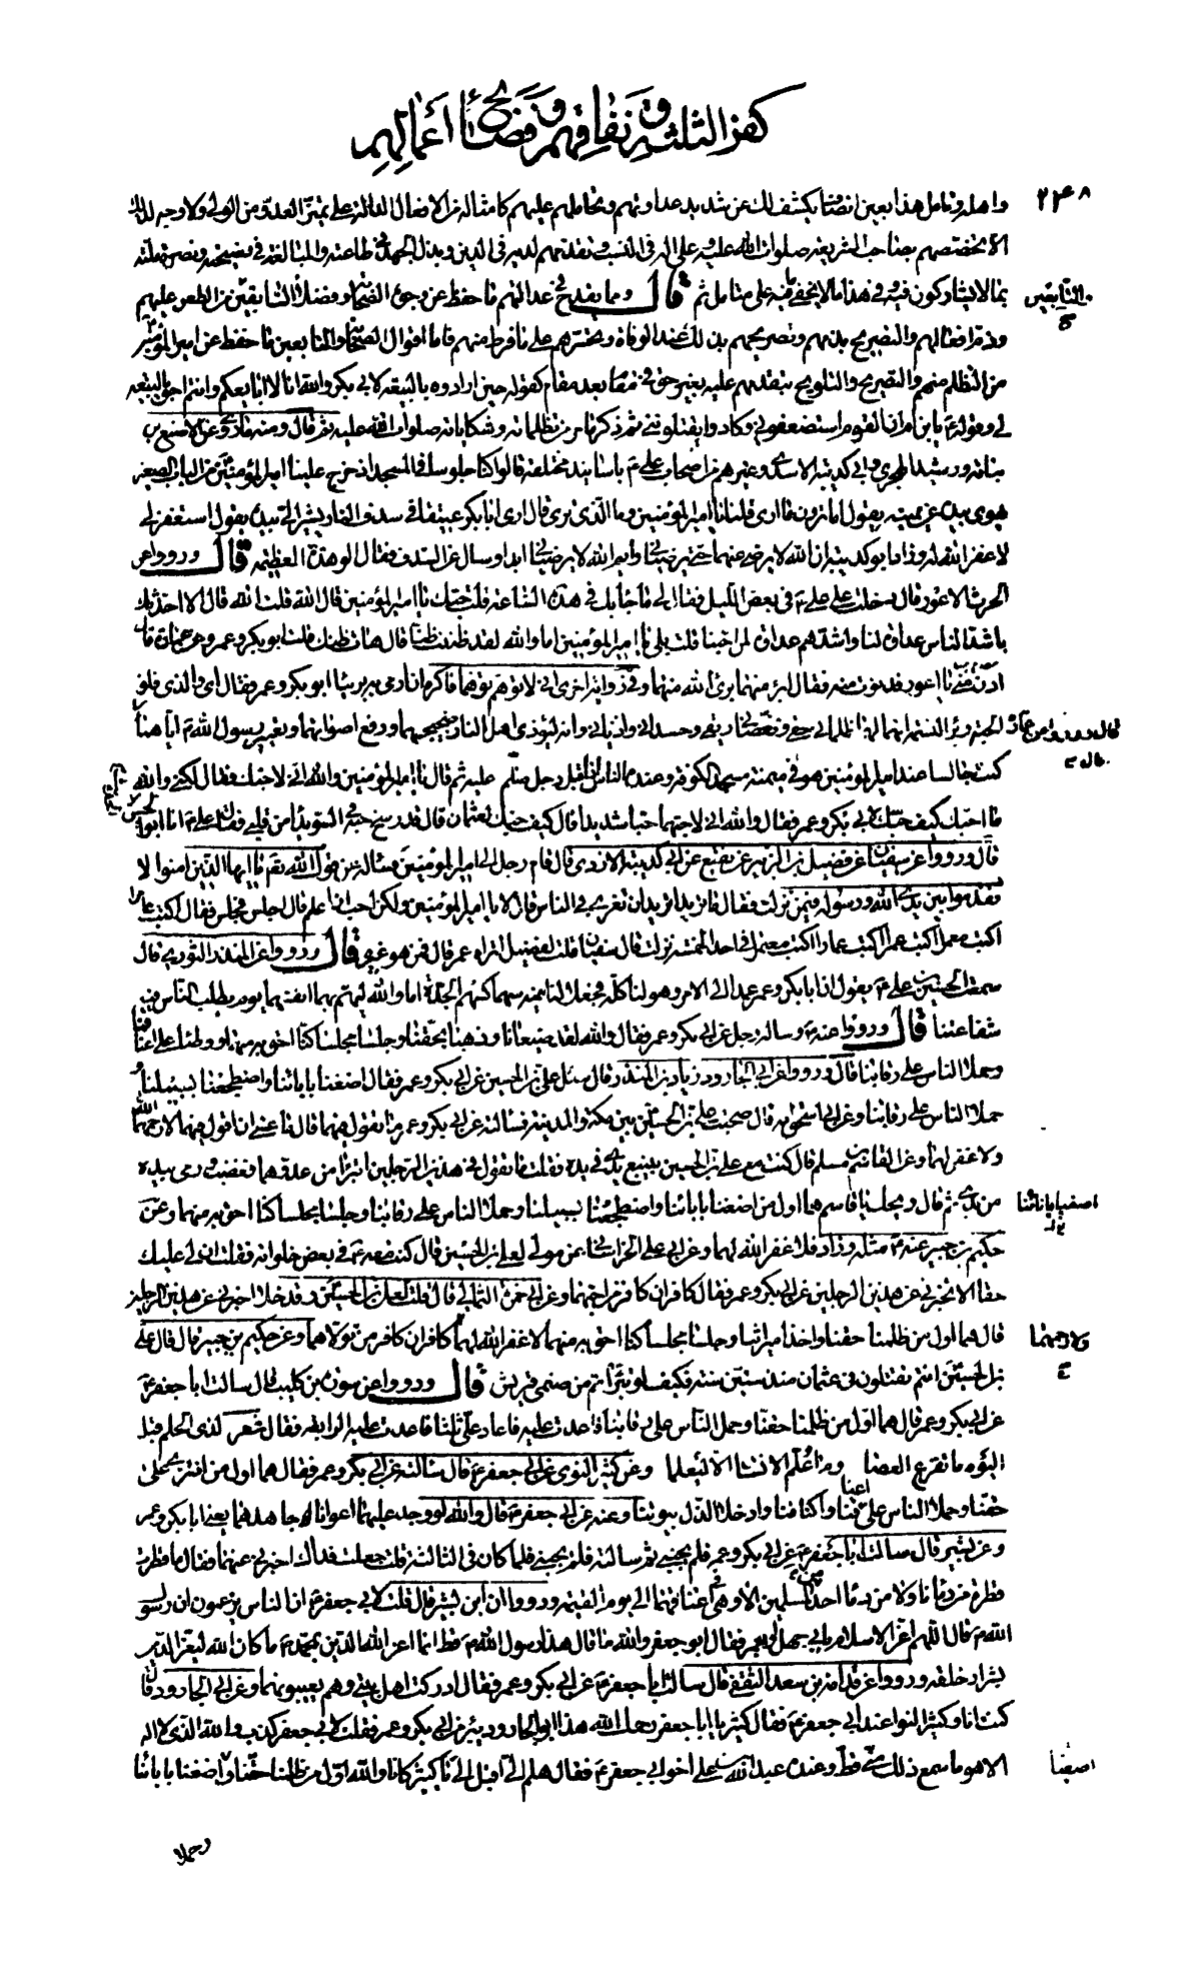 كفر الثلثة و نفاقهم و فضائح أعمالهم
٢٤٨
واهله وتامل هذا بعين انصاف يكشف لك عن شديد عداوتهم وتحاملهم عليهم كامثاله من الافعال الدالة على تميز العدو من الولى ولا وجه لذلك
الا تخصصهم بصاحب الشريعة صلوات الله عليه وعلى اله فى النسب وتقدمهم لديه فى الدين وبذل الجهد فى طاعته والمبالغة فى نصيحته ونصرة ملته
بما لا يشاركون فيه وفى هذا ما لا يخفى ما فيه على متامل ثم قال ومما يقدح فى عدالتهم ما حفظ عن وجوه الصحابة وفضلاء السابقين من الطعن عليهم
والتابعين
وذم افعالهم والتصريح بذمهم وتصريحهم بذلك عند الوفاة وتحسرهم على ما فرط منهم فاما اقوال الصحابة والتابعين ما حفظ عن امير المؤمنين
من التظلم منهم والتصريح والتلويح بتقدمهم عليه بغير حق فى مقام بعد مقام كقوله حين ارادوه بالبيعة لابى بكر والله انا لا ابايعكم وانتم احق بالبيعة
لى وقوله ع يابن ام ان القوم استضعفونى وكادوا يقتلوننى ثم ذكر ما مر من تظلماته وشكاياته صلوات الله عليه ثم قال ومنه ما روى عن الاصبغ بن
نباتة ورشيد الهجرى وابى كديبة الاسدى وغيرهم من اصحاب على ع باسانيد مختلفة قالوا كنا جلوسا فى المسجد اذ خرج علينا امير المؤمنين من الباب الصغير
يهوى بيده عن يمينه يقول اما ترون ما ارى قلنا يا امير المؤمنين وما الذى ترى قال ارى ابا بكر عتيقا فى سدف النار يشير الى بيده يقول استغفر لى
لا غفر الله له وزاد ابو كديبة ان الله لا يرضى عنهما حتى يرضيانى وايم الله لا يرضيانى ابدا وسئل عن السدف فقال الوهدة العظيمة قال ورووا عن
الحرث الاعور قال دخلت على على ع فى بعض الليل فقال لى ما جاء بك فى هذه الساعة قلت حبك يا امير المؤمنين قال الله قلت الله قال الا احدثك
باشد الناس عداوة لنا واشدهم عداوة لمن احبنا قلت بلى يا امير المؤمنين اما والله لقد ظننت ظنا قال هات ظنك قلت ابو بكر وعمر قال
ادن منى يا اعور فدنوت منه فقال ابرء منهما برئ الله منهما وفى رواية اخرى انى لاتوهم توهما فاكره ان ارمى به بريئا ابو بكر وعمر فقال اى والذى فلق
الحبة وبرأ النسمة انهما لهما ظلمانى حقى ونغصانى ريقى وحسدانى واذيانى وانه ليؤذى اهل النار ضجيجهما ورفع اصواتهما وتعيير رسول الله ص اياهما
كنت جالسا عند امير المؤمنين وهو فى ميمنة مسجد الكوفة وعنده الناس اذ اقبل رجل فسلم عليه ثم قال يا امير المؤمنين والله انى لاحبك فقال لكنى والله
ما احبك كيف حبك لابى بكر وعمر فقال والله انى لاحبهما حبا شديدا قال كيف حبك لعثمان قال قد رسخ حبه فى السويداء من قلبى فقال على ع انا ابو
الحسن
قال ورووا عن سفيان عن فضيل بن الزبير عن نقيع عن ابى كديبة الازدى قال قام رجل الى امير المؤمنين فساله عن قول الله تعم يا ايها الذين امنوا لا
تقدموا بين يدى الله ورسوله فيمن نزلت فقال ما تريد اتريد ان تغرى بى الناس قال لا يا امير المؤمنين ولكن احب ان اعلم قال اجلس فجلس فقال اكتب عامرا
اكتب معمرا اكتب عمر اكتب عمارا اكتب معتمرا فى احد الخمسة نزلت قال سفيان قلت لفضيل اتراه عمر قال فمن هو غيره قال ورووا عن المنذر الثورى قال
سمعت الحسين بن على ع يقول ان ابا بكر وعمر عمدا الى الامر وهو لنا كله فجعلا لنا فيه سهما كسهم الجدة اما والله ليهتم بهما انفسهما يوم يطلب الناس فيه
شفاعتنا قال ورووا عنه ع وساله رجل عن ابى بكر وعمر فقال والله لقد ضيعانا وذهبا بحقنا وجلسا مجلسا كنا احق به منهما ووطئا على اعناقنا
وحملا الناس على رقابنا قال ورووا عن ابى الجارود زياد بن المنذر قال سئل على بن الحسين عن ابى بكر وعمر فقال اضغنا باباءنا واضطجعا بسبيلنا و
حملا الناس على رقابنا وعن ابى اسحق انه قال صحبت على بن الحسين بين مكة والمدينة فسالته عن ابى بكر وعمر ما تقول فيهما قال ما عسى ان اقول فيهما لا رحمهما الله
ولا غفر لهما وعن القاسم بن مسلم قال كنت مع على بن الحسين بينبع يدى فى يده فقلت ما تقول فى هذين الرجلين اتبرأ من عدوهما فغضب ورمى بيده
من يدى ثم قال ويحك يا قاسم هما اول من اضغنا باباءنا واضطجعا بسبيلنا وحملا الناس على رقابنا وجلسا مجلسا كنا احق به منهما وعن
حكيم بن جبير عنه ع مثله وزاد فلا غفر الله لهما وعن ابى على الخراسانى عن مولى لعلى بن الحسين قال كنت معه ع فى بعض خلواته فقلت ان لى عليك
حقا الا تخبرنى عن هذين الرجلين عن ابى بكر وعمر فقال كافران كافر من احبهما وعن ابى حمزة الثمالى قال قلت لعلى بن الحسين وقد خلا اخبرنى عن هذين الرجلين
قال هما اول من ظلمنا حقنا واخذا ميراثنا وجلسا مجلسا كنا احق به منهما لا غفر الله لهما كافران كافر من تولاهما وعن حكيم بن جبير قال قال على
ولا رحمهما
بن الحسين انتم تقتلون فى عثمان منذ ستين سنة فكيف لو تبرأتم من صنمى قريش قال ورووا عن سورة بن كليب قال سالت ابا جعفر ع
عن ابى بكر وعمر قال هما اول من ظلمنا حقنا وحمل الناس على رقابنا فاعدت عليه فاعاد على ثلثا فاعدت عليه الرابعة فقال شعر لذى الحلم قبل
اليوم ما تقرع العصا وما علم الانسان الا ليعلما وعن كثير النوى عن ابى جعفر ع قال سالته عن ابى بكر وعمر فقال هما اول من انتزى على
حقنا وحملا الناس على اعناقنا واكتافنا وادخلا الذل بيوتنا وعنه عن ابى جعفر ع قال والله لو وجد عليهما اعوانا لجاهدهما يعنى ابا بكر وعمر
وعن بشير قال سالت ابا جعفر ع عن ابى بكر وعمر فلم يجبنى ثم سالته فلم يجبنى فلما كان فى الثالثة قلت جعلت فداك اخبرنى عنهما فقال ما قطرت
قطرة من دمائنا ولا من دماء احد من المسلمين الا وهى فى اعناقهما الى يوم القيمة ورووا ان ابن بشير قال قلت لابى جعفر ع ان الناس يزعمون ان رسول
الله ص قال اللهم اعز الاسلام بابى جهل او بعمر فقال ابو جعفر والله ما قال هذا رسول الله ص قط انما اعز الله الدين بمحمد ص ما كان الله ليعز الدين
بشرار خلقه ورووا عن قدامة بن سعد الثقفى قال سالت ابا جعفر ع عن ابى بكر وعمر فقال ادركت اهل بيتى وهم يعيبونهما وعن ابى الجارود قال
كنت انا وكثير النوا عند ابى جعفر ع فقال كثير يا ابا جعفر رحمك الله هذا ابو الجارود يبرئ من ابى بكر وعمر فقلت لابى جعفر كذب والله الذى لا اله
الا هو ما سمع ذلك منى قط وعنده عبد الله بن على اخو ابى جعفر ع فقال هلم الى اقبل الى يا كثير كانا والله اول من ظلمنا حقنا واضغنا باباءنا
وحملا